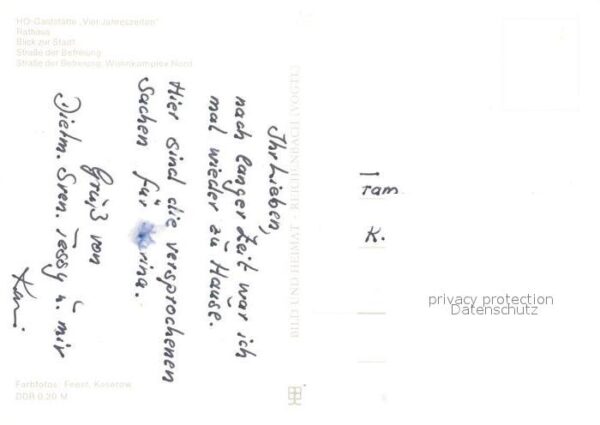 HO-Gaststätte „Vier Jahreszeiten"
Rathaus
Blick zur Stadt
Straße der Befreiung
Straße der Befreiung, Wohnkomplex Nord
Ihr Lieben,
nach langer Zeit war ich
mal wieder zu Hause.
Hier sind die versprochenen
Sachen für rina.
Gruß von
Dielm. Sven. Tessy u. mir
BILD UND HEIMAT · REICHENBACH (VOGTL)
Fam.
K.
privacy protection
Datenschutz
Farbfotos: Feast, Koserow
DDR 0,20 M